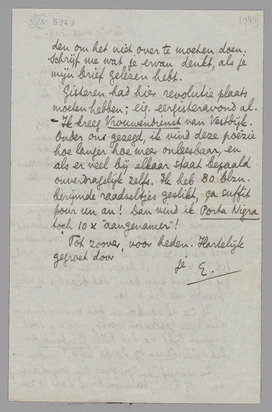 den om het niet over te moeten doen.
Schrijf me wat je ervan denkt, als je
mijn brief gelezen hebt.
Gisteren had hier revolutie plaats
moeten hebben; eig. eergisteravond al.
– Ik kreeg Vrouwendienst van Vestdijk.
Onder ons gezegd, ik vind deze poëzie
hoe langer hoe meer onleesbaar, en
als er veel bij elkaar staat bepaald
onverdragelijk zelfs. Ik heb 80 blzn.
berijmde raadseltjes geslikt, ça suffit
pour un an! Dan vind ik Porta Nigra
toch 10 x "aangenamer"!
Tot zoover, voor heden. Hartelijk
gegroet door
je E.